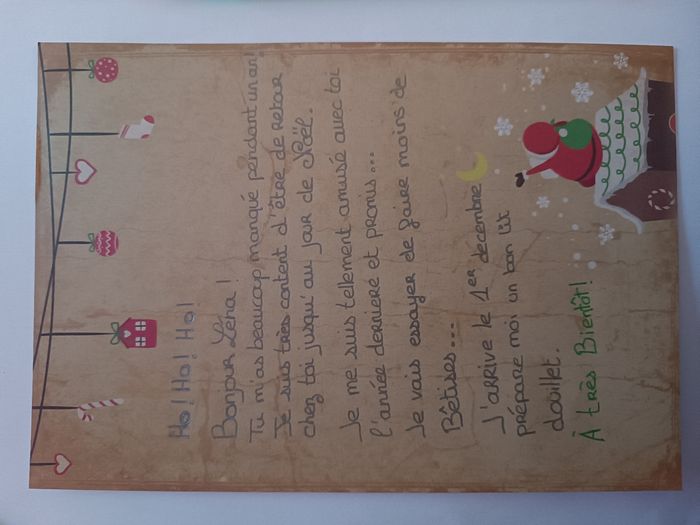 Ho! Ho! Ho!
Bonjour Léna !
Tu m'as beaucoup manqué pendant un an!
Je suis très content d'être de retour
chez toi jusqu'au jour de Noël.
Je me suis tellement amusé avec toi
l'année dernière et promis...
Je vais essayer de faire moins de
Bêtises...
J'arrive le 1er décembre
prépare moi un bon lit
douillet.
À très Bientôt!